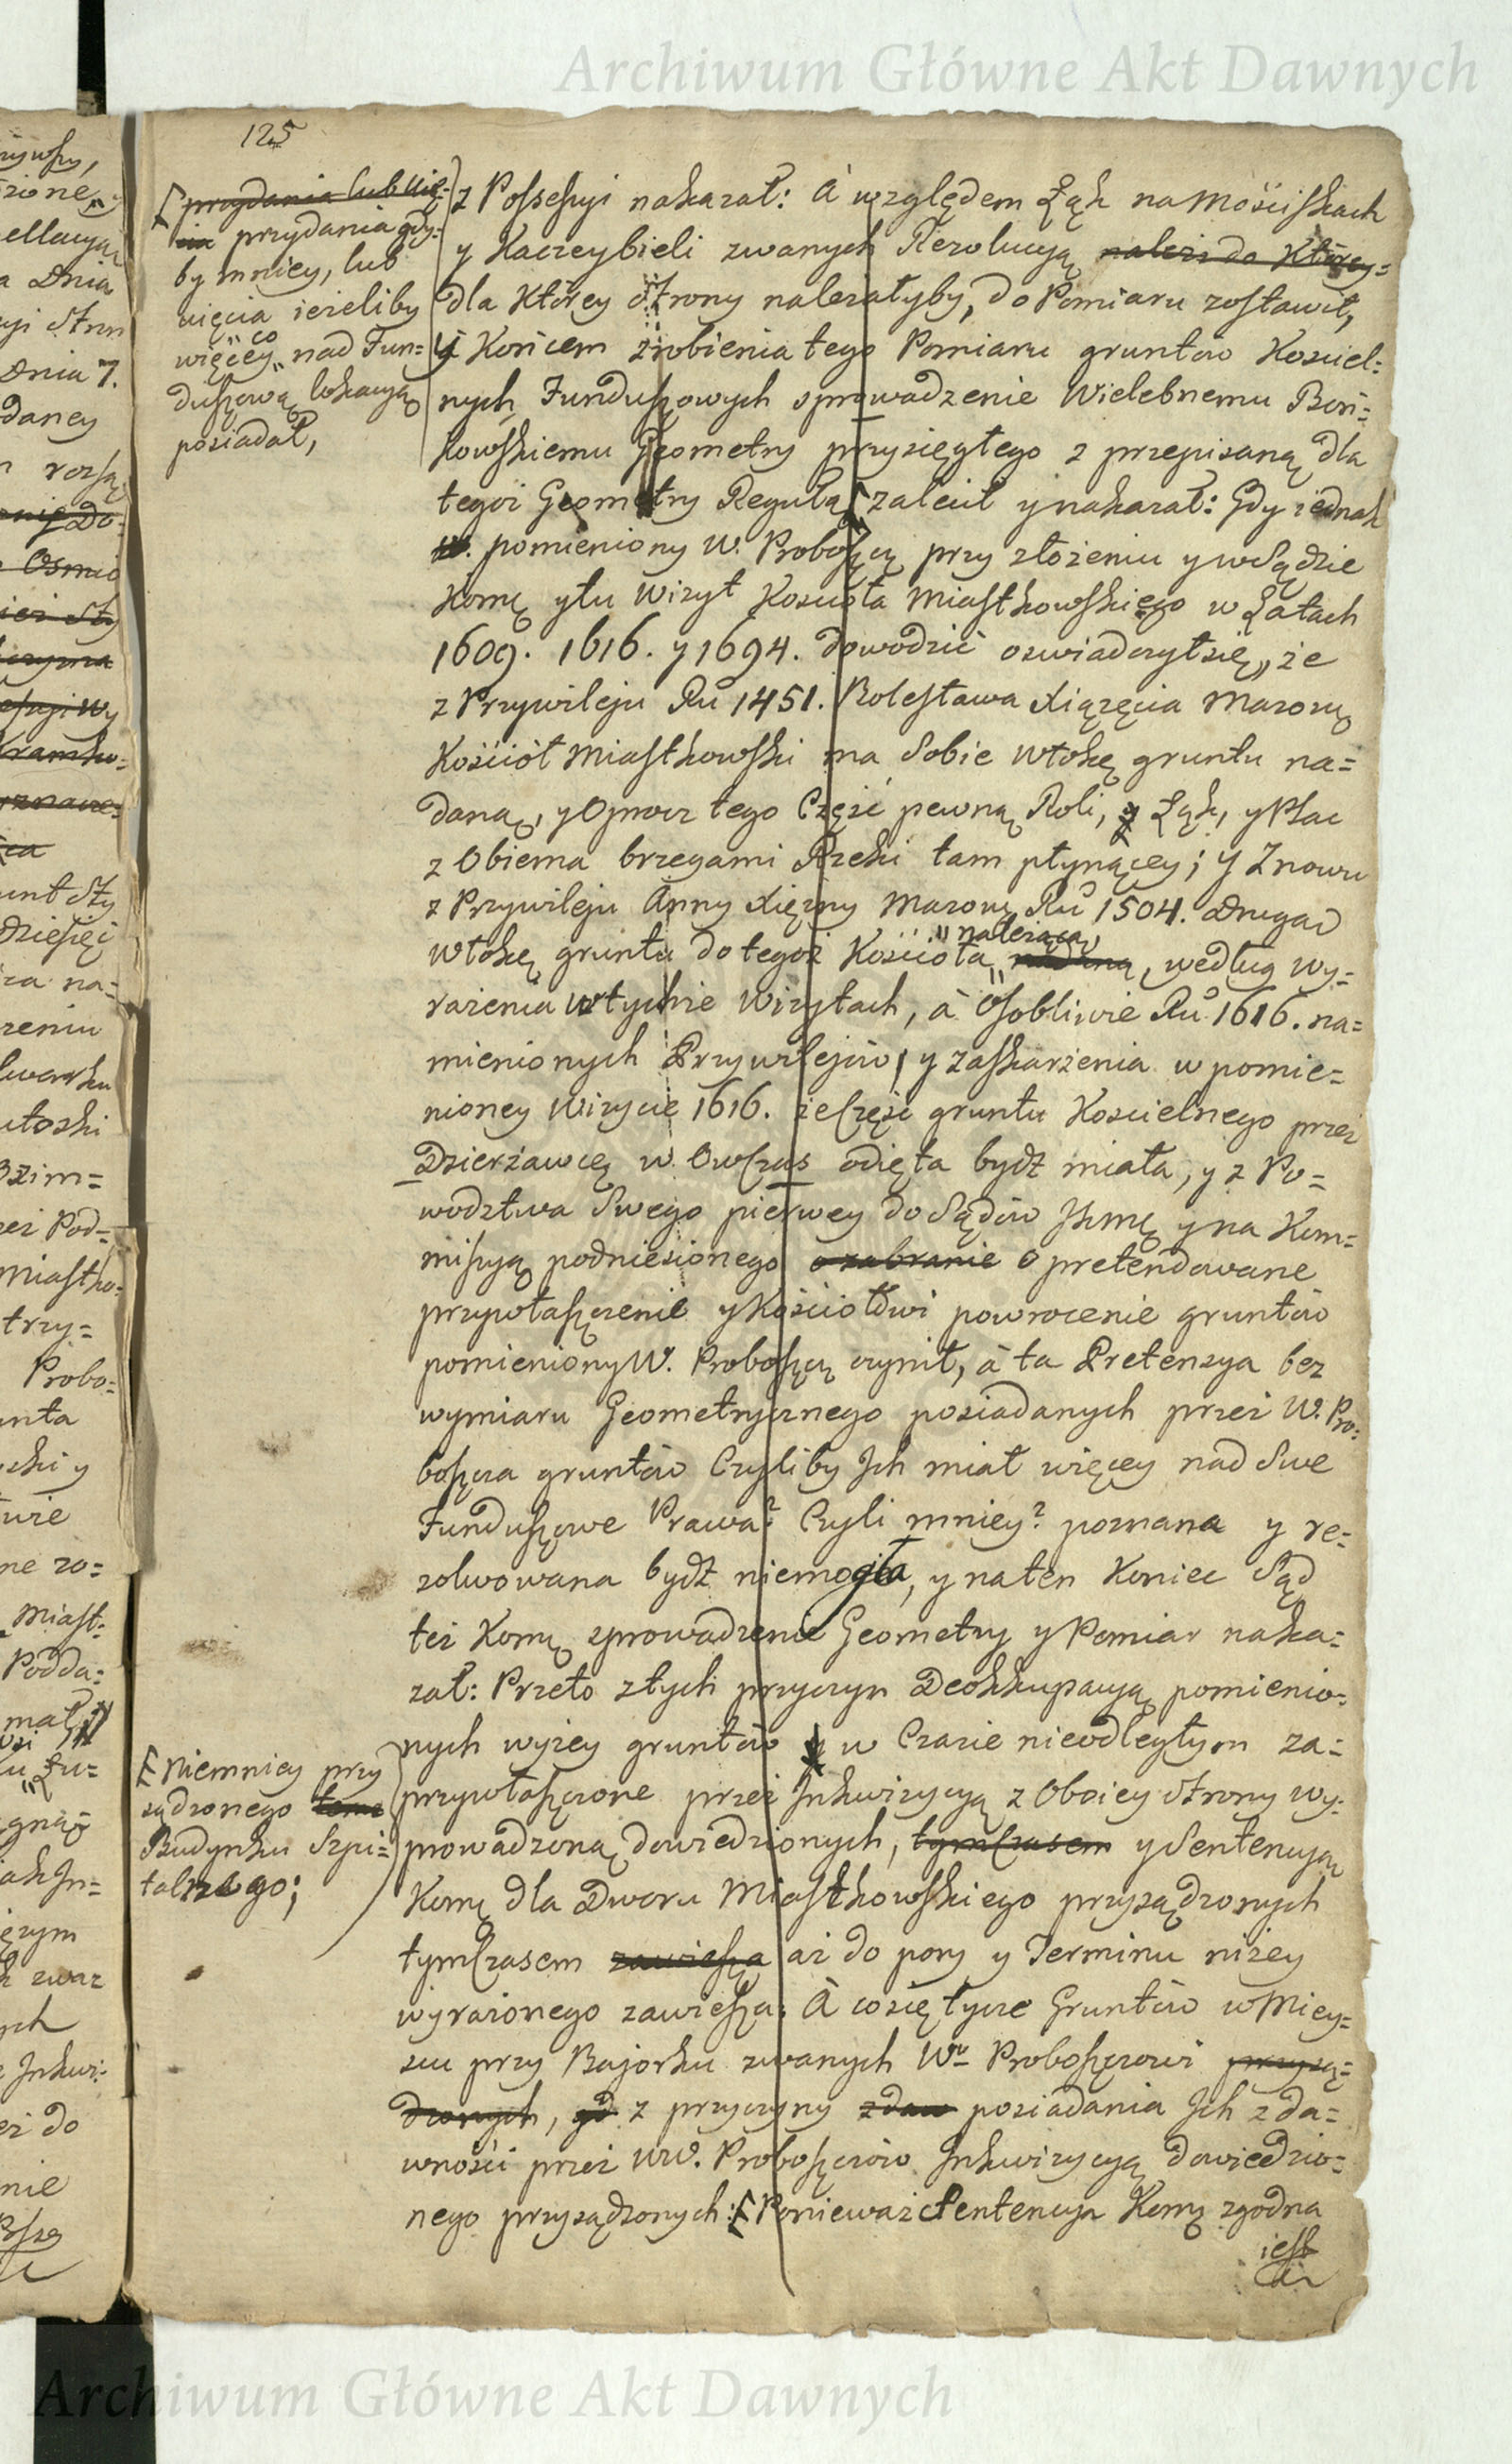 Archiwum Główne Akt Dawnych
125
przydania lub uię=
cia przydania gdy=
by mniey, lub
uięcia ieżeliby
więcey co nad Fun=
duszową lokacyą
posiadał,
z Possessyi nakazał: à względem Łąk na Mościskach
y Kaczeybieli zwanych Rezolucyą należi do Którey=
dla Którey strony należałyby, do Pomiaru zostawił,
y Końcem zrobienia tego Pomiaru gruntów Kościel=
nych Funduszowych sprowadzenie Wielebnemu Boń=
kowskiemu Geometry przysięgłego z przepisaną dla
tegoż Geometry Regułą zalecił y nakazał: Gdy iednak
w. pomieniony W. Proboszcz przy złożeniu y w Sądzie
Komę y tu Wizyt Kościoła Miastkowskiego w Latach
1609. 1616. y 1694. dowodzić oswiadczył się, że
z Przywileju Rũ 1451. Bolesława Xiążęcia Mazowę
Kościół Miastkowski ma Sobie Włokę gruntu na=
daną, y Oprocz tego Część pewną Roli, y Łąk, y Plac
z Obiema brzegami Rzeki tam płynącey; y Znowu
z Przywileju Anny Xiężny Mazowę Rũ 1504. Drugą
Włokę gruntu do tegoż Kościoła należącą, według wy=
rażenia w tychże Wizytach, à Osobliwie Rũ 1616. na=
mienionych Przywilejów, y zaskarżenia w pomie=
nioney Wizycie 1616. że Część gruntu Koscielnego przez
Dzierżawcę w Owczas odięta bydź miała, y z Po=
wodztwa Swego pierwey do Sądów Jkmę y na Kom=
missyą podniesionego o zabranie o pretendowane
przywłaszczenie y Kościołowi powrocenie gruntów
pomieniony W. Proboszcz czynił, à ta Pretensya bez
wymiaru Geometrycznego posiadanych przez W. Pro=
boszcza gruntów Czyliby Jch miał więcey nad Swe
Funduszowe Prawa? Czyli mniey? poznana y re=
zolwowana bydź niemogła, y na ten Koniec Sąd
też Komę zprowadzenie Geometry y Pomiar naka=
zał: Przeto z tych przyczyn Deokkupacyą pomienio=
nych wyżey gruntów y w Czasie nieodległym za=
przywłaszczone przez Jnkwizycyą z Oboiey Strony wy=
prowadzoną dowiedzionych, tymczasem y Sentencyą
Komę dla Dworu Miastkowskiego przysądzonych
tymczasem zawiesza aż do pory y Terminu niżey
wyrażonego zawiesza: À co się tycze Gruntów w Miey=
scu przy Bajorku zwanych Wu Proboszczowi przysą=
dzonych, gd z przyczyny zdaw posiadania Jch z da=
wności przez WW. Proboszczów Jnkwizycyą dowiedzio=
nego przysądzonych: Ponieważ Sentencya Komę zgodna
iest
Niemniey przy
sądzonego
Budynku Szpi=
talnego;
Archiwum Główne Akt Dawnych